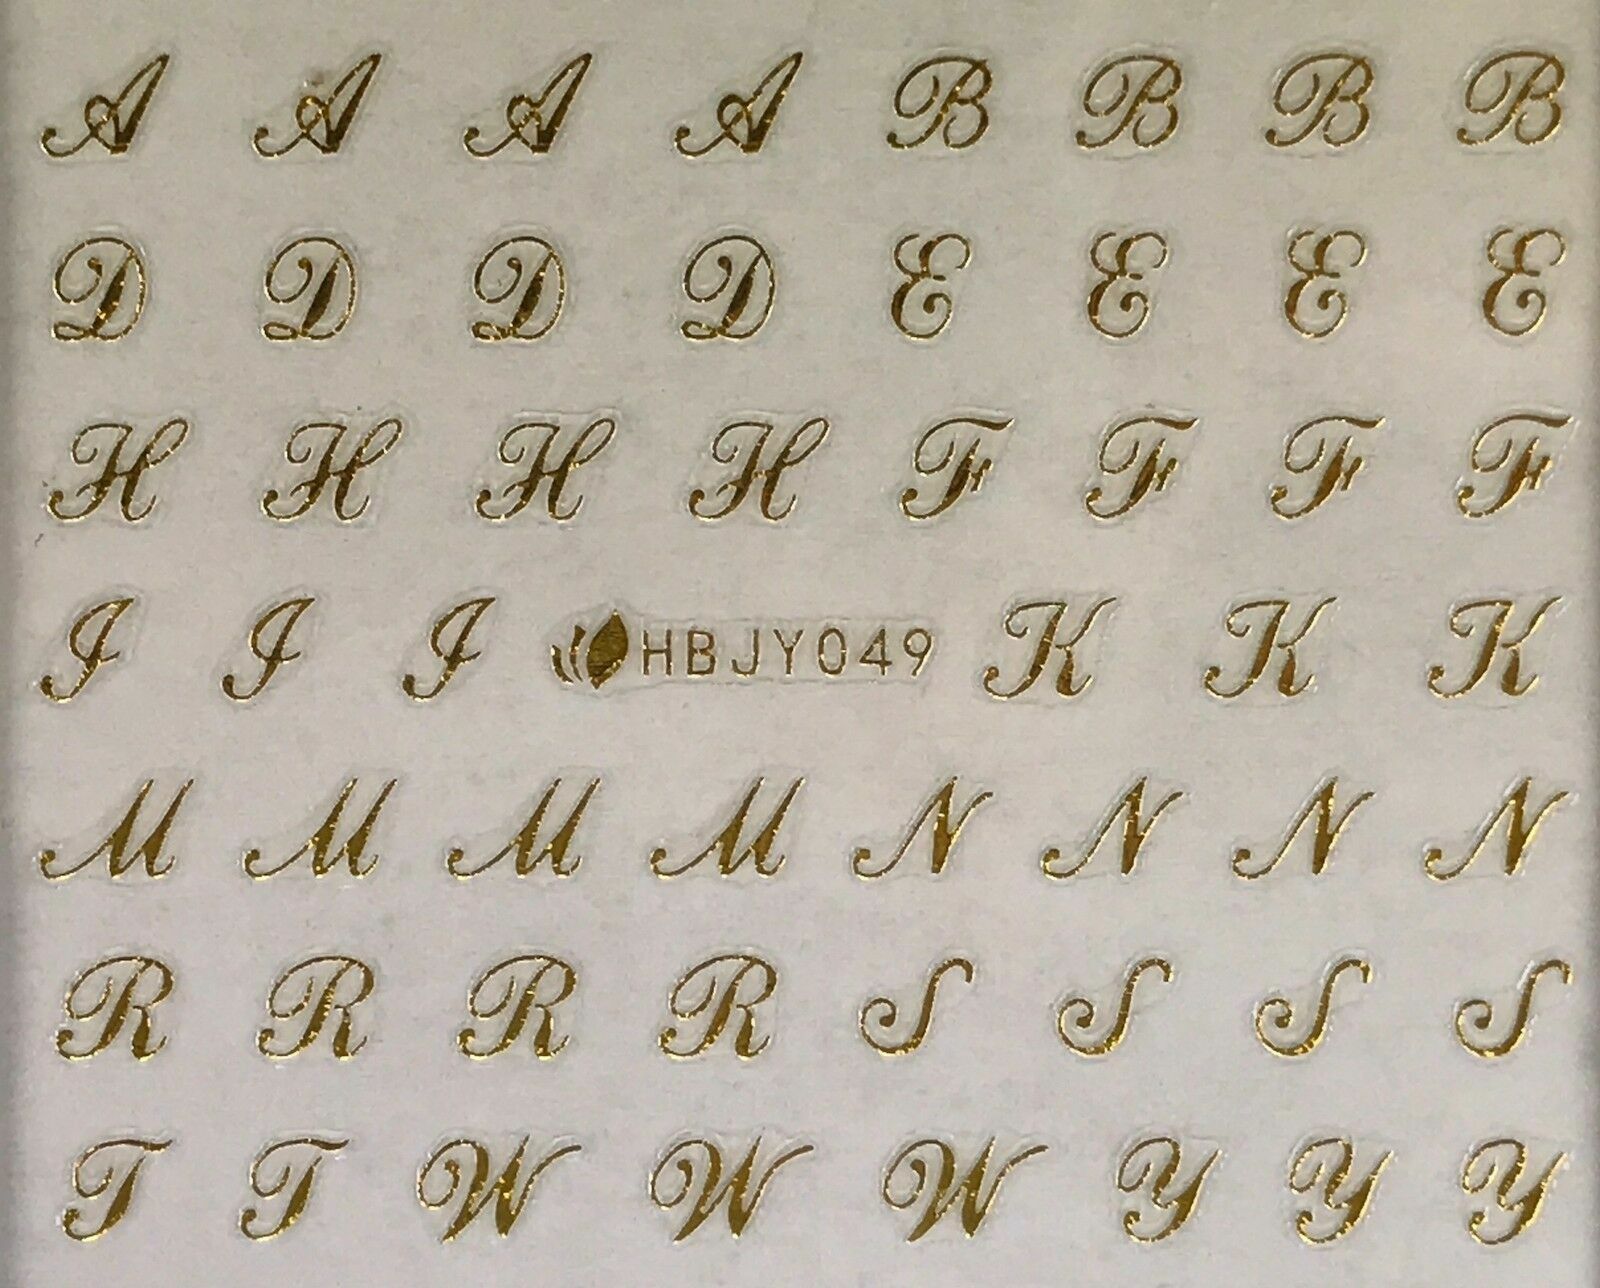 A A A A B B B B
D D D D E E E E
H H H H F F F F
I I I HBJY049 K K K
M M M M N N N N
R R R R S S S S
T T W W W Y Y Y